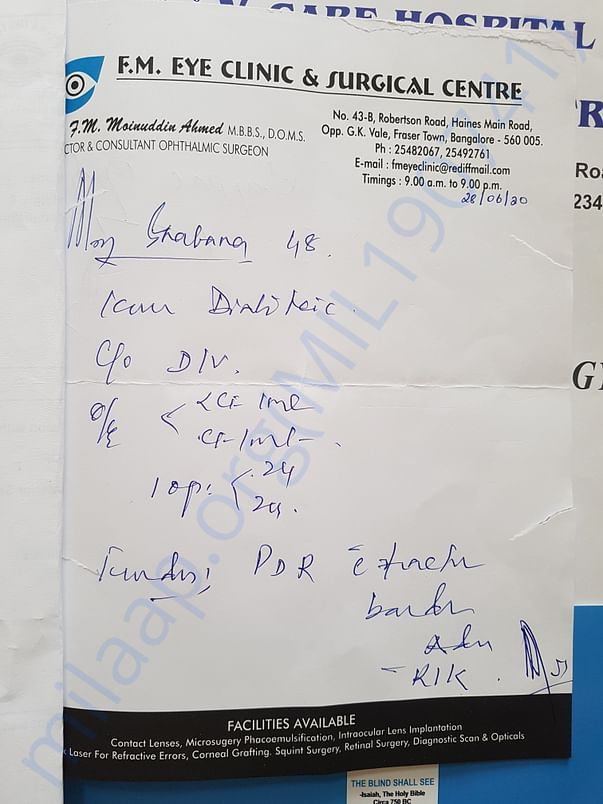 CARE HOSPITAL
F.M. EYE CLINIC & SURGICAL CENTRE
F.M. Moinuddin Ahmed M.B.B.S., D.O.M.S.
CTOR & CONSULTANT OPHTHALMIC SURGEON
No. 43-B, Robertson Road, Haines Main Road,
Opp. G.K. Vale, Fraser Town, Bangalore - 560 005.
Ph : 25482067, 25492761
E-mail : fmeyeclinic@rediffmail.com
Timings : 9.00 a.m. to 9.00 p.m.
Roa
234
28/06/20
48.
Diabetic.
C/o DIV.
O/E < CF 1mt
CF-1mt-.
IOP: < 24
24.
Fundus; PDR c̄ tractn
bands
Adv
- RIK.
FACILITIES AVAILABLE
Contact Lenses, Microsugery Phacoemulsification, Intraocular Lens Implantation
Laser For Refractive Errors, Corneal Grafting. Squint Surgery, Retinal Surgery, Diagnostic Scan & Opticals
THE BLIND SHALL SEE
-Isaiah, The Holy Bible
Circa 750 BC